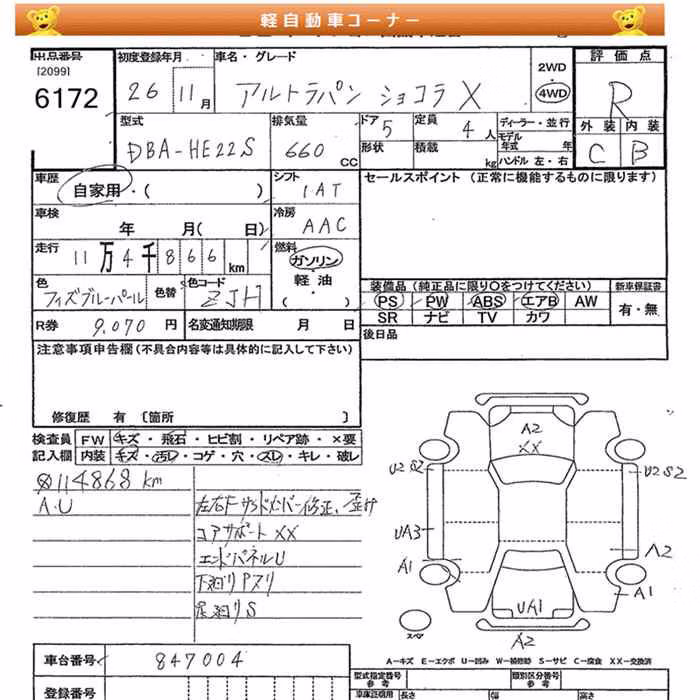 軽自動車コーナー
出品番号 初度登録年月 車名・グレード 評価点
[2099]
6172 26 11月 アルトラパン ショコラ X 2WD 4WD R
外装 内装
C B
型式 排気量 ドア 定員 ディーラー・並行
DBA-HE22S 660 CC 5 4人 モデル年式 年
形状 積載 kg ハンドル 左・右
車歴 自家用・( ) シフト 1AT セールスポイント (正常に機能するものに限ります)
車検 年 月( 日) 冷房 AAC
走行 11万4千866km 燃料 ガソリン・軽油・( )
色 フィズブルーパール 色替 色コード ZJH
装備品 (純正品に限り〇をつけてください) 新車保証書
PS PW ABS エアB AW 有・無
SR ナビ TV カワ
R券 9,070 円 名変通知期限 月 日 後日品
注意事項申告欄(不具合内容等は具体的に記入して下さい)
修復歴 有 〔箇所 〕
検査員 FW キズ・飛石・ヒビ割・リペア跡・×要
記入欄 内装 キズ・汚レ・コゲ・穴・スレ・キレ・破レ
114868 km
A.U
コアサポート XX
エンドパネルU
下廻りPスリ
足廻りS
A2
XX
U2 S2 U2 S2
UA3 A2
A1 A1
UA1
A2
スペア
A-キズ E-エクボ U-凹み W-補修跡 S-サビ C-腐食 XX-交換済
車台番号 847004
型式指定番号 参考 類別区分番号 参考
登録番号 車庫証明用 長さ 幅 高さ